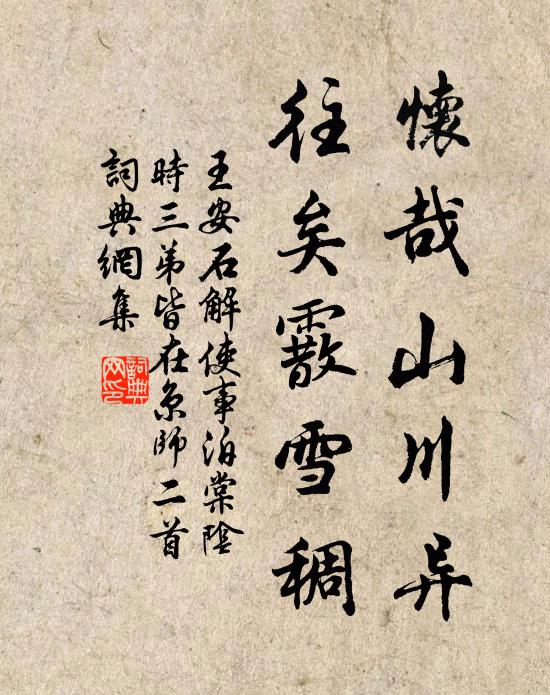 懷哉山川异
往矣霰雪稠
王安石解使事泊棠陰
時三弟皆在京師二首
詞典網集
詞典
网印